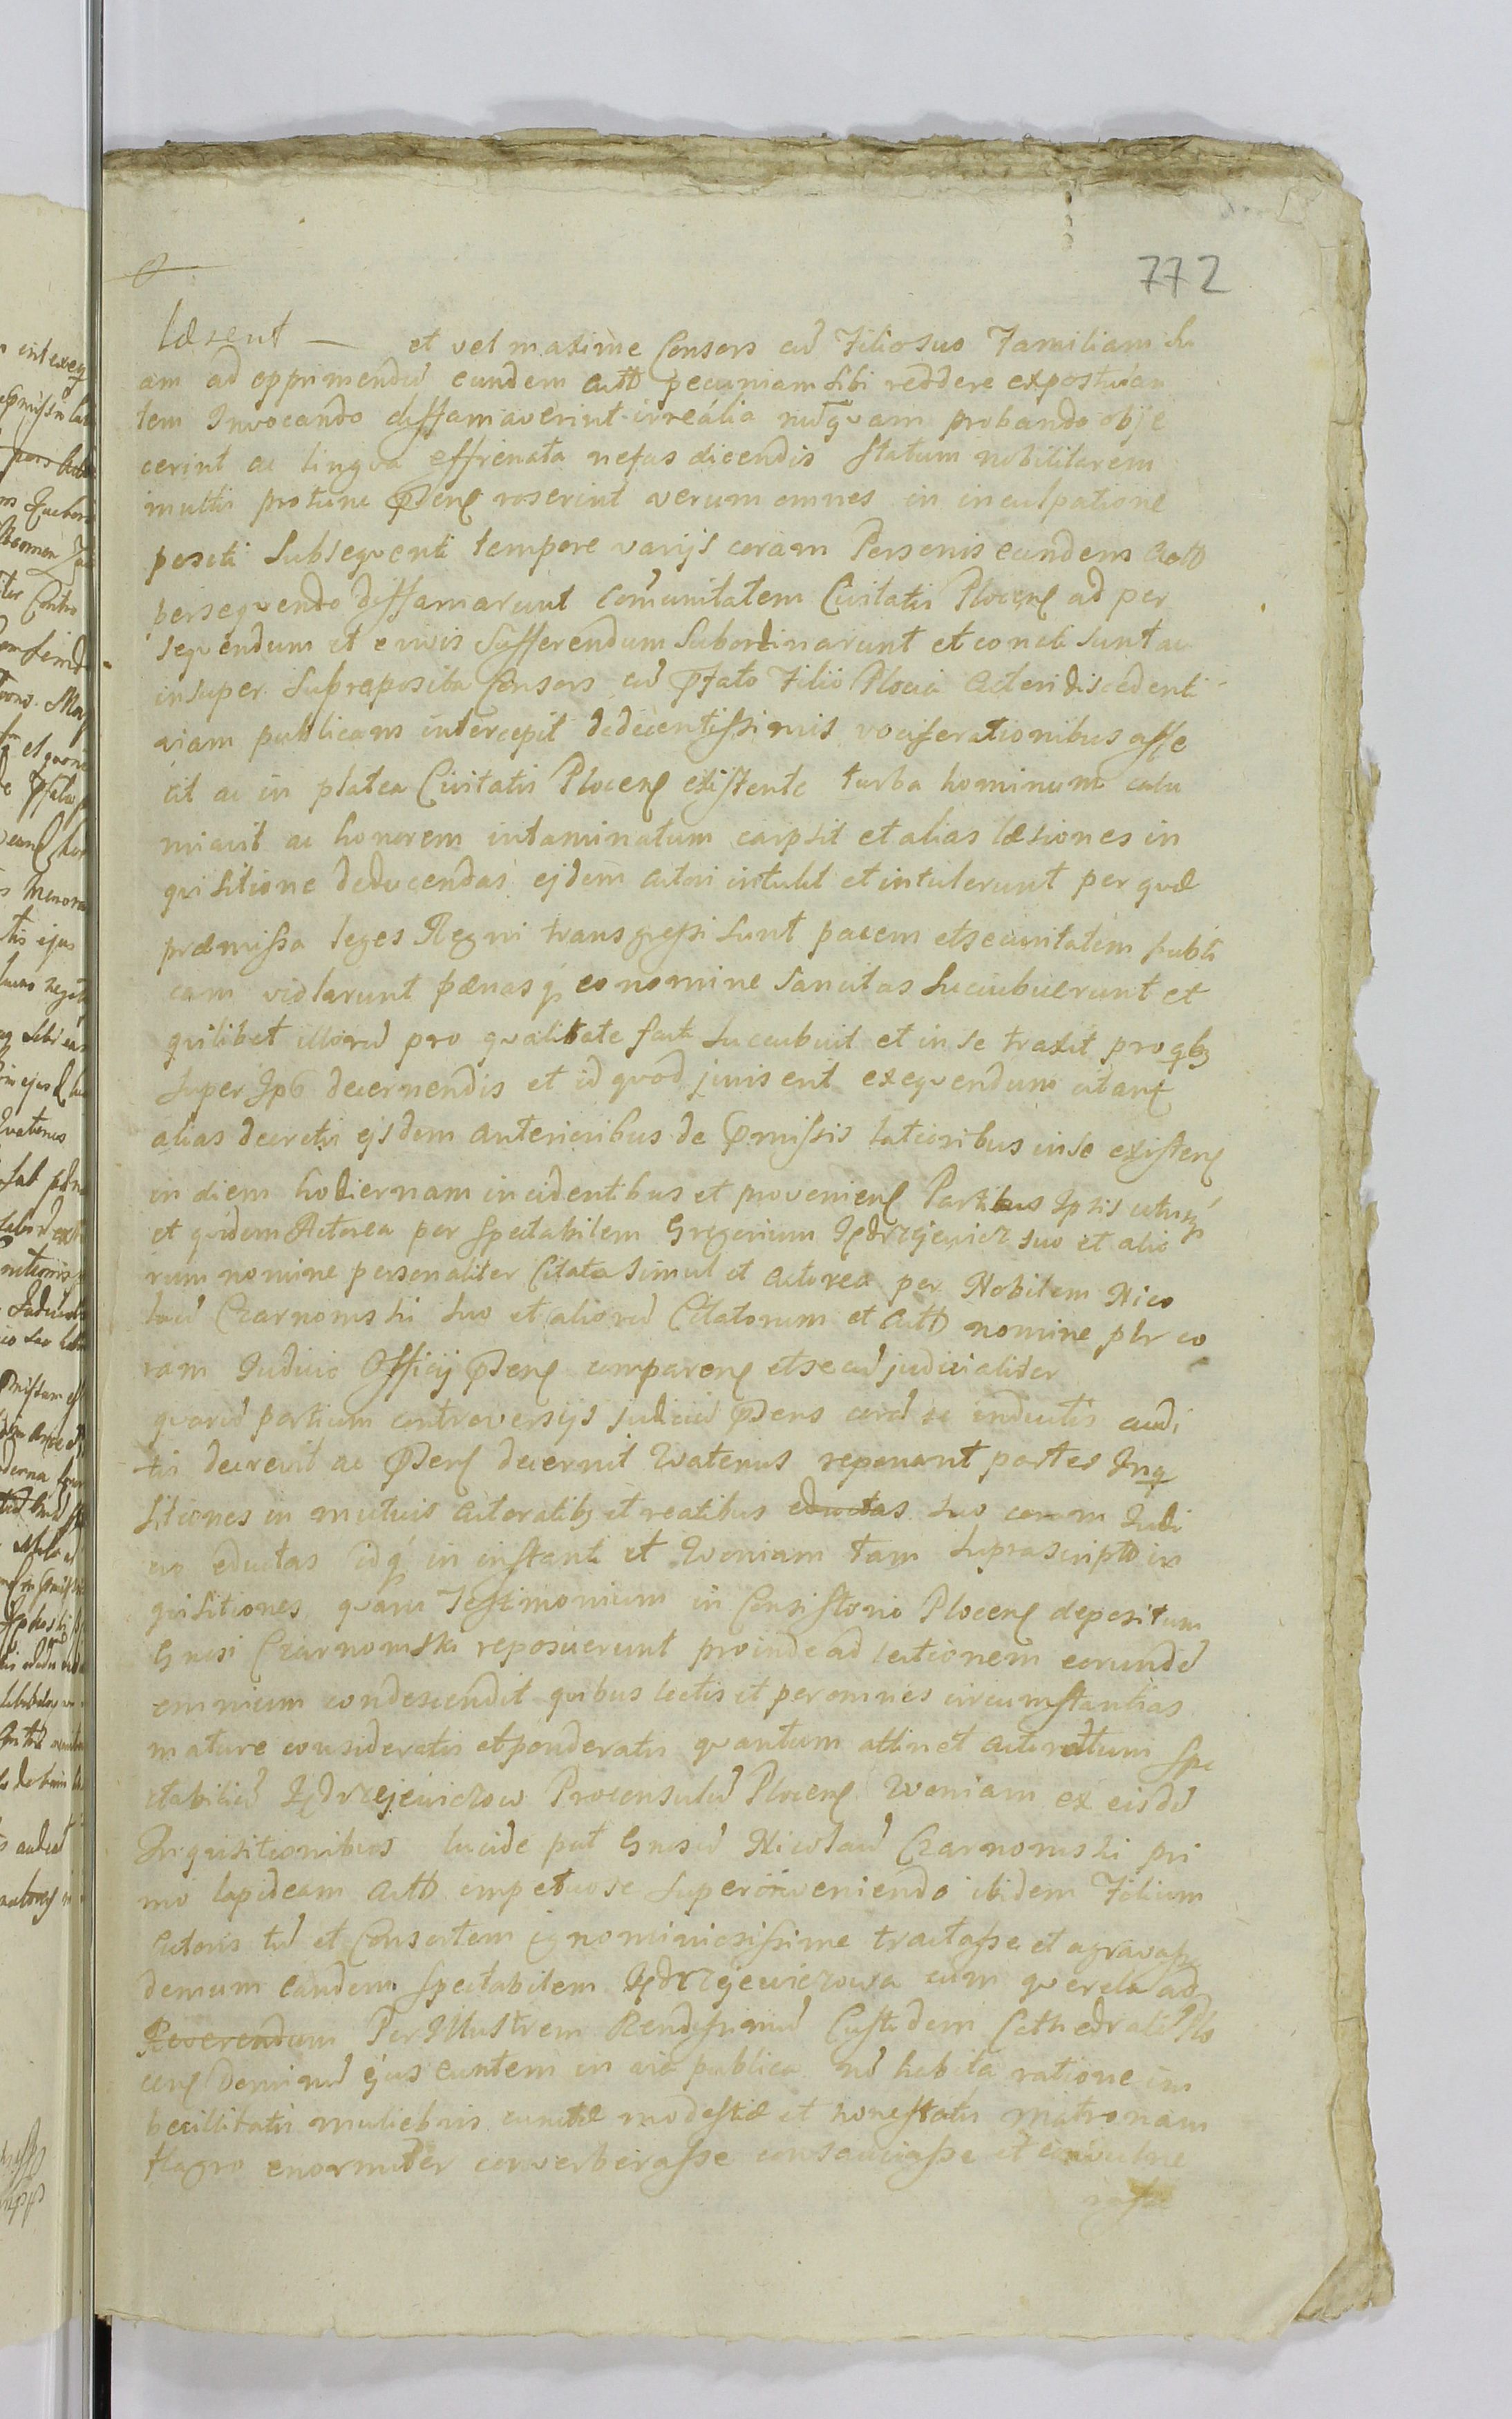 772
læsent — et vel maxime Consors cũ Filio suo Familiam su
am ad opprimendũ eundem Actt pecuniam sibi reddere expostulan
tem Invocando diffamaverint irrealia nũqvam probando obje
cerint ac lingva effrenata nefas dicendis statum nobilitarem
multis protunc roserint verum omnes in inculpatione
positi subseqventi tempore varijs coram Personis eundem Actt
perseqvendo diffamarunt Com̃unitatem Civitatis Plocen ad per
seqvendum et e vivis sufferendum subordinarunt et conati sunt ac
insuper supraposita Consors cũ Filio Plocia Actori discedenti
viam publicam intercepit dedecentissimis vociferationibus affe
cit ac in platea Civitatis Plocen existente turba hominum calu
miavit ac honorem intaminatum carpsit et alias læsiones in
qvisitione deducendas ejdem Actori intulit et intulerunt per qvæ
præmissa leges Regni transgressi sunt pacem et securitatem publi
cam violarunt pænasq́ eo nomine sancitas succubuerunt et
qvilibet illorũ pro qvalitate facti succubuit et in se traxit pro qbz
super decernendis et id qvod juris erit exeqvendum citan
alias decretis ejsdem anterioribus de latioribus in se existen
in diem hodiernam incidentibus et provenien Partibus Ipsis
et qvidem Actorea per Spectabilem Gregorium Jędrzejewicz suo et alio
rum nomine personaliter Citata simul et Actorea per Nobilem Nico
laũ Czarnomski suo et aliorũ Citatorum et Actt nomine plr co
ram Judicio Officij comparen et se cũ judicialiter
qvarũ partium controversijs Judiciũ se inductis audi
tis decrevit ac decernit qvatenus reponant partes Inq
sitiones in mutuis Actoratibz et reatibus eductas suo coram Judi
cio eductas idq́ in instanti et qvoniam tam suprascriptt in
qvisitiones qvam Testimonium in Consistorio Plocen depositum
Gnosi Czarnomski reposuerunt proinde ad lectionem eorundẽ
omnium condescendit qvibus lectis et per omnes circumstantias
mature consideratis et ponderatis qvantum attinet Actoratum Spe
ctabiliũ Jędrzejewiczow Proconsulũ Plocen qvoniam ex eisdẽ
Inqvisitionibus lucide pat Gnosũ Nicolaũ Czarnomski pri
mo lapideam Actt impetuose superinveniendo ibidem Filium
Actoris tũ et Consortem ignominiosissime tractasse et agravasse
demum eandem Spectabilem Jędrzejewiczowa cum qverela ad
Reverendum PerIllustrem Rendissimũ Custodem Cathedralẽ Plo
cen Dominũ ejus euntem in via publica nõ habita ratione im
becillitatis muliebris cunctæ modestiæ et honestatis matronam
flagro enormiter converberasse consauciasse et convulne
rasse